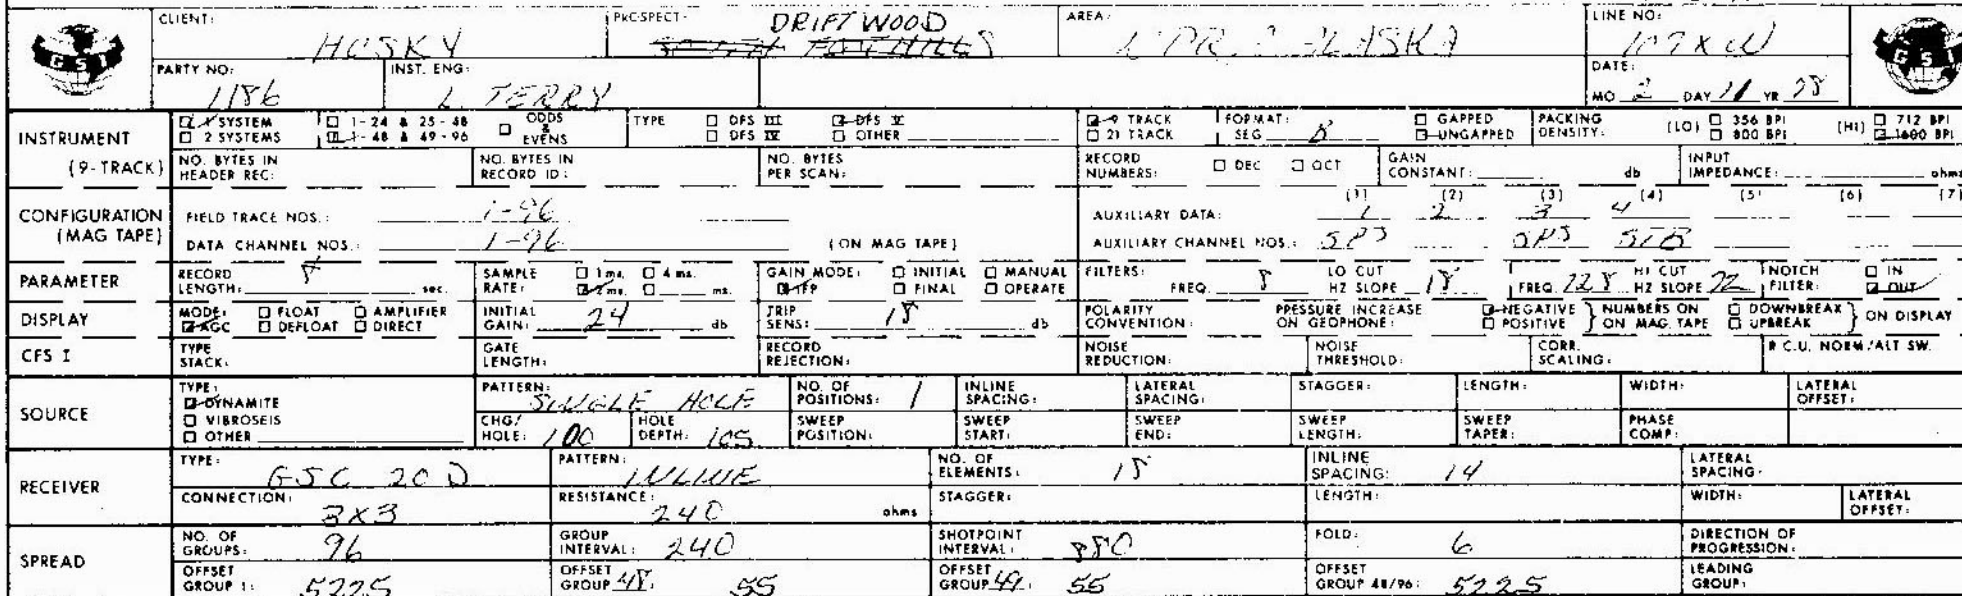 CLIENT: HUSKY PROSPECT: DRIFTWOOD AREA: ALASKA LINE NO: 107XW
GSI GSI
PARTY NO: 1186 INST. ENG: L TERRY DATE: MO 2 DAY 11 YR 78
INSTRUMENT (9-TRACK) 1 SYSTEM 1-24 & 25-48 ODDS & EVENS TYPE DFS III DFS V 9 TRACK FORMAT: GAPPED PACKING DENSITY: (LO) 356 BPI (HI) 712 BPI
2 SYSTEMS 1-48 & 49-96 DFS IV OTHER 21 TRACK SEG B UNGAPPED 800 BPI 1600 BPI
NO. BYTES IN HEADER REC: NO. BYTES IN RECORD ID: NO. BYTES PER SCAN: RECORD NUMBERS: DEC OCT GAIN CONSTANT: db INPUT IMPEDANCE: ohms
CONFIGURATION (MAG TAPE) (1) (2) (3) (4) (5) (6) (7)
FIELD TRACE NOS.: 1-96 AUXILIARY DATA: 1 2 3 4
DATA CHANNEL NOS.: 1-96 (ON MAG TAPE) AUXILIARY CHANNEL NOS.:
PARAMETER RECORD LENGTH: sec. SAMPLE RATE: 1 ms. 4 ms. 2 ms. ms. GAIN MODE: INITIAL MANUAL IFP FINAL OPERATE FILTERS: FREQ. 8 LO CUT HZ SLOPE 18 FREQ. 128 HI CUT HZ SLOPE 72 NOTCH FILTER: IN OUT
DISPLAY MODE: FLOAT AMPLIFIER AGC DEFLOAT DIRECT INITIAL GAIN: 24 db TRIP SENS: 18 db POLARITY CONVENTION: PRESSURE INCREASE ON GEOPHONE: NEGATIVE POSITIVE } NUMBERS ON MAG TAPE { DOWNBREAK UPBREAK } ON DISPLAY
CFS I TYPE STACK: GATE LENGTH: RECORD REJECTION: NOISE REDUCTION: NOISE THRESHOLD: CORR. SCALING: R C.U. NORM/ALT SW.
SOURCE TYPE: DYNAMITE VIBROSEIS OTHER PATTERN: SINGLE HOLE NO. OF POSITIONS: 1 INLINE SPACING: LATERAL SPACING: STAGGER: LENGTH: WIDTH: LATERAL OFFSET:
CHG/HOLE: 100 HOLE DEPTH: 105 SWEEP POSITION: SWEEP START: SWEEP END: SWEEP LENGTH: SWEEP TAPER: PHASE COMP:
RECEIVER TYPE: GSC 20 D PATTERN: INLINE NO. OF ELEMENTS: 18 INLINE SPACING: 14 LATERAL SPACING:
CONNECTION: 3X3 RESISTANCE: 240 ohms STAGGER: LENGTH: WIDTH: LATERAL OFFSET:
SPREAD NO. OF GROUPS: 96 GROUP INTERVAL: 240 SHOTPOINT INTERVAL: 880 FOLD: 6 DIRECTION OF PROGRESSION:
OFFSET GROUP 1: 5225 OFFSET GROUP 48: 55 OFFSET GROUP 49: 55 OFFSET GROUP 48/96: 5225 LEADING GROUP: